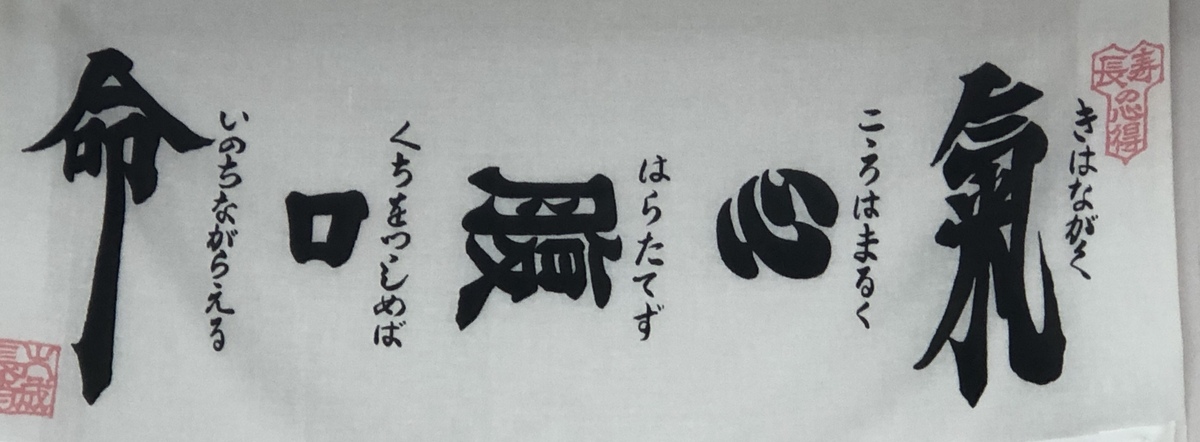 長寿
の心得
きはながく
氣
こころはまるく
心
はらたてず
腹
くちをつゝしめば
口
いのちながらえる
命